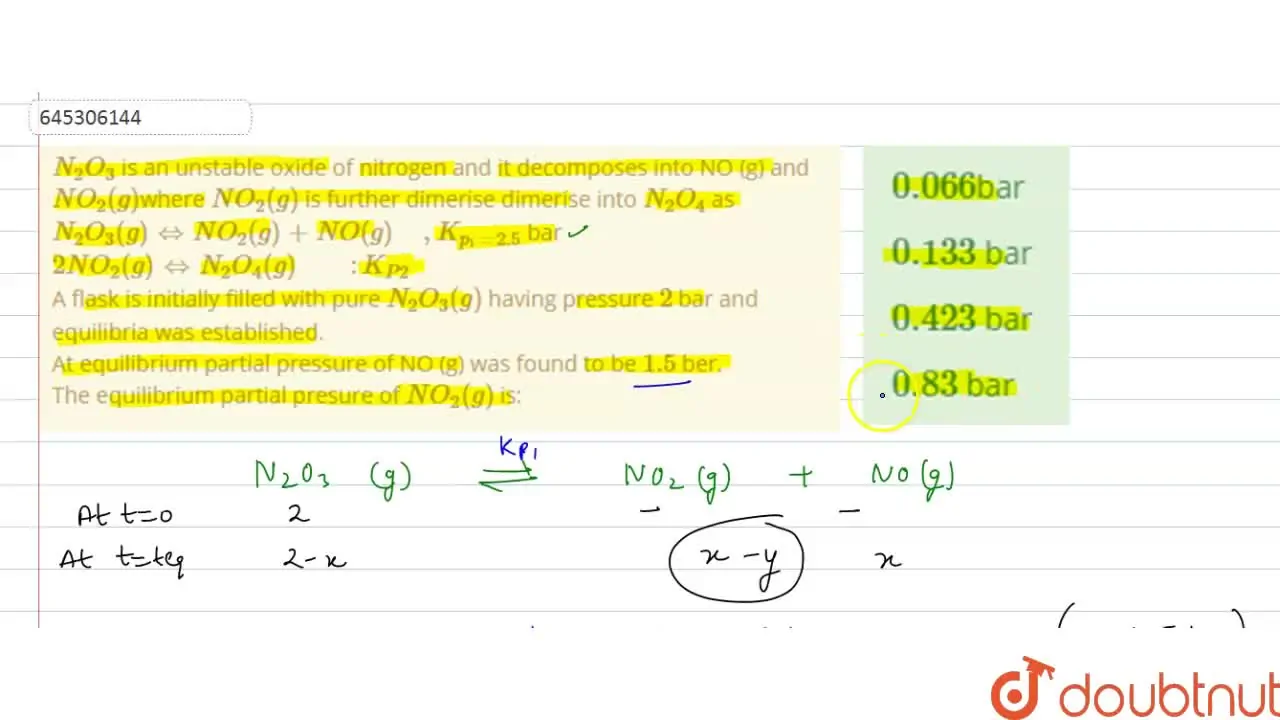 645306144
N₂O₃ is an unstable oxide of nitrogen and it decomposes into NO (g) and
NO₂(g)where NO₂(g) is further dimerise dimerise into N₂O₄ as
N₂O₃(g) ⇔ NO₂(g) + NO(g) , K_{p₁=2.5} bar ✓
2NO₂(g) ⇔ N₂O₄(g) : K_{P2}
A flask is initially filled with pure N₂O₃(g) having pressure 2 bar and
equilibria was established.
At equilibrium partial pressure of NO (g) was found to be 1.5 ber.
The equilibrium partial presure of NO₂(g) is:
0.066bar
0.133 bar
0.423 bar
0.83 bar
Kp₁
N₂O₃ (g) ⇌ NO₂ (g) + NO(g)
At t=0 2 – –
At t=teq 2-x x-y x
doubtnut